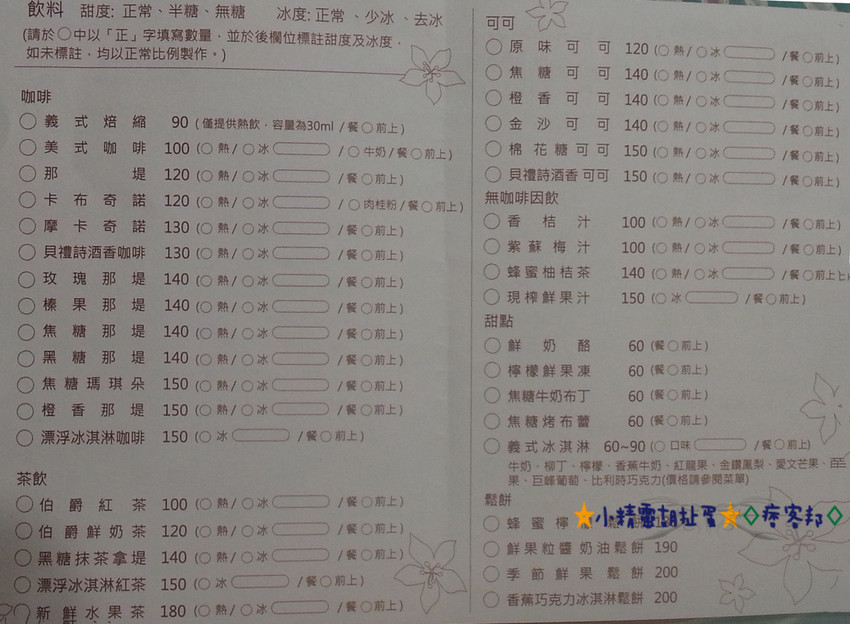 飲料 甜度: 正常、半糖、無糖 冰度: 正常、少冰、去冰
(請於○中以「正」字填寫數量，並於後欄位標註甜度及冰度，
如未標註，均以正常比例製作。)
咖啡
○ 義式焙縮 90 (僅提供熱飲，容量為30ml /餐○前上)
○ 美式咖啡 100 (○熱/○冰 /○牛奶/餐○前上)
○ 那堤 120 (○熱/○冰 /餐○前上)
○ 卡布奇諾 120 (○熱/○冰 /○肉桂粉/餐○前上)
○ 摩卡奇諾 130 (○熱/○冰 /餐○前上)
○ 貝禮詩酒香咖啡 130 (○熱/○冰 /餐○前上)
○ 玫瑰那堤 140 (○熱/○冰 /餐○前上)
○ 榛果那堤 140 (○熱/○冰 /餐○前上)
○ 焦糖那堤 140 (○熱/○冰 /餐○前上)
○ 黑糖那堤 140 (○熱/○冰 /餐○前上)
○ 焦糖瑪琪朵 150 (○熱/○冰 /餐○前上)
○ 橙香那堤 150 (○熱/○冰 /餐○前上)
○ 漂浮冰淇淋咖啡 150 (○冰 /餐○前上)
茶飲
○ 伯爵紅茶 100 (○熱/○冰 /餐○前上)
○ 伯爵鮮奶茶 120 (○熱/○冰 /餐○前上)
○ 黑糖抹茶拿堤 140 (○熱/○冰 /餐○前上)
○ 漂浮冰淇淋紅茶 150 (○冰 /餐○前上)
○ 新鮮水果茶 180 (○熱/○冰 /餐○前上)
可可
○ 原味可可 120 (○熱/○冰 /餐○前上)
○ 焦糖可可 140 (○熱/○冰 /餐○前上)
○ 橙香可可 140 (○熱/○冰 /餐○前上)
○ 金沙可可 140 (○熱/○冰 /餐○前上)
○ 棉花糖可可 150 (○熱/○冰 /餐○前上)
○ 貝禮詩酒香可可 150 (○熱/○冰 /餐○前上)
無咖啡因飲
○ 香桔汁 100 (○熱/○冰 /餐○前上)
○ 紫蘇梅汁 100 (○熱/○冰 /餐○前上)
○ 蜂蜜柚桔茶 140 (○熱/○冰 /餐○前上
○ 現榨鮮果汁 150 (○冰 /餐○前上)
甜點
○ 鮮奶酪 60 (餐○前上)
○ 檸檬鮮果凍 60 (餐○前上)
○ 焦糖牛奶布丁 60 (餐○前上)
○ 焦糖烤布蕾 60 (餐○前上)
○ 義式冰淇淋 60~90 (○口味 /餐○前上)
牛奶、柳丁、檸檬、香蕉牛奶、紅龍果、金鑽鳳梨、愛文芒果、
果、巨峰葡萄、比利時巧克力(價格請參閱菜單)
鬆餅
○ 蜂蜜檸
★小精靈胡扯蛋★◇痞客邦◇
○ 鮮果粒醬奶油鬆餅 190
○ 季節鮮果鬆餅 200
○ 香蕉巧克力冰淇淋鬆餅 200